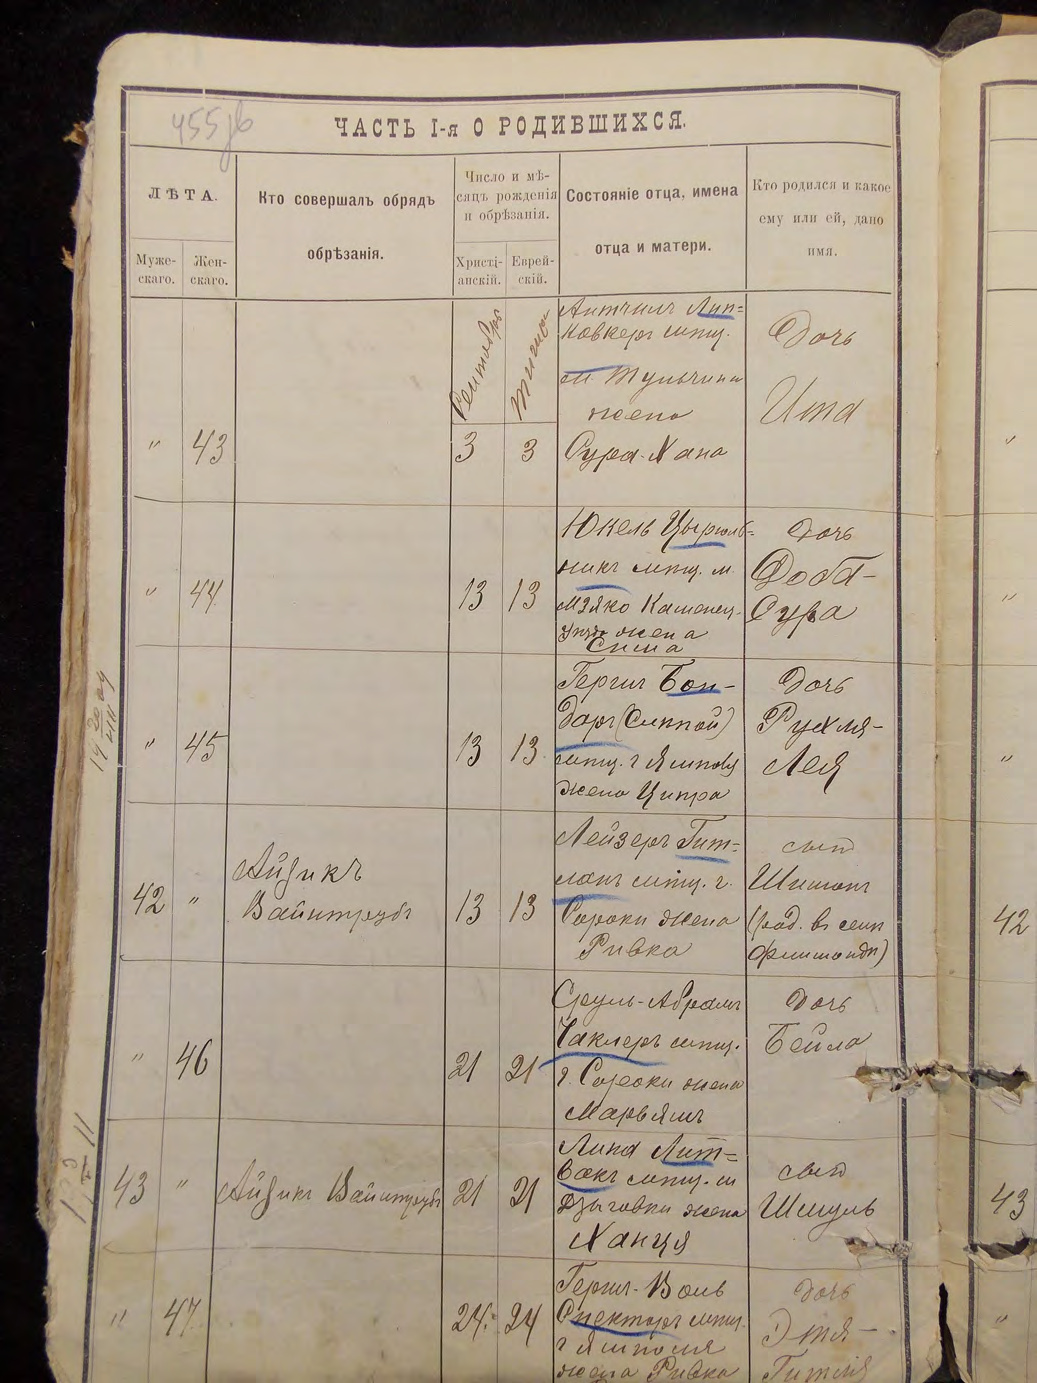 455 об
ЧАСТЬ I-я О РОДИВШИХСЯ.
ЛѢТА.
Муже-
скаго.
Жен-
скаго.
Кто совершалъ обрядъ
обрѣзанія.
Число и мѣ-
сяцъ рожденія
и обрѣзанія.
Христі-
анскій.
Еврей-
скій.
Состояніе отца, имена
отца и матери.
Кто родился и какое
ему или ей, дано
имя.
Сентябрь
Тишри
" 43
3 3
Лип-
мѣщ.
м. Тульчина
жена
Сура-Хана
Дочь
Ита
" 44
13 13
Юкель Цыруль-
никъ мѣщ. м.
Каменец.
жена
Сима
Дочь
Доба-
Сура
" 45
13 13
Гершъ Бон-
даръ (слѣпой)
мѣщ. г. Ямполя
жена Ципра
Дочь
Рухля-
Лея
42 "
Айзикъ
Вайнтрубъ
13 13
Лейзеръ Гит-
ланъ мѣщ. г.
Сороки жена
Ривка
сынъ
Шимонъ
(род. въ
" 46
21 21
Сруль-Абрамъ
Чаклеръ мѣщ.
г. Сороки жена
Марьямъ
Дочь
Бейла
43 "
Айзикъ Вайнтрубъ
21 21
Липа Лит-
вакъ мѣщ. м.
Дзыговки жена
Ханця
сынъ
Шмуль
" 47
24 24
Гершъ-Волъ
Спекторъ мѣщ.
г. Ямполя
жена Ривка
дочь
Этя-
Гитля
"
"
"
42
43
"